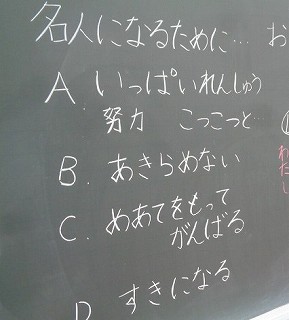 名人になるために… お
A. いっぱいれんしゅう
努力 こっこつと…
B. あきらめない
C. めあてをもって
がんばる
D すきになる
わたし